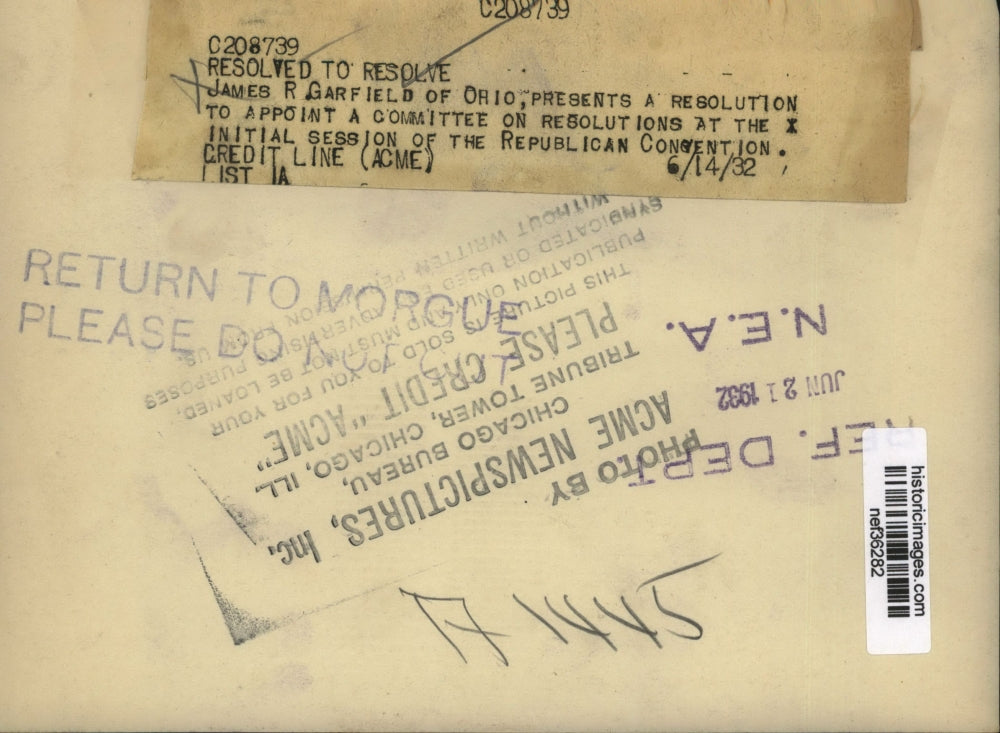 C208739
C208739
RESOLVED TO RESOLVE
JAMES R.GARFIELD OF OHIO,PRESENTS A RESOLUTION
TO APPOINT A COMMITTEE ON RESOLUTIONS AT THE X
INITIAL SESSION OF THE REPUBLICAN CONVENTION.
CREDIT LINE (ACME) 6/14/32
LIST 1A
RETURN TO MORGUE
PLEASE DO NOT CUT
N.E.A.
JUN 21 1932
REF. DEPT
PHOTO BY
ACME NEWSPICTURES, Inc.
CHICAGO BUREAU,
TRIBUNE TOWER, CHICAGO, ILL.
PLEASE CREDIT "ACME"
THIS PICTURE IS SOLD TO YOU FOR YOUR
PUBLICATION ONLY AND MUST NOT BE LOANED,
SYNDICATED OR USED FOR ADVERTISING PURPOSES
WITHOUT WRITTEN PERMISSION
historicimages.com
nef36282